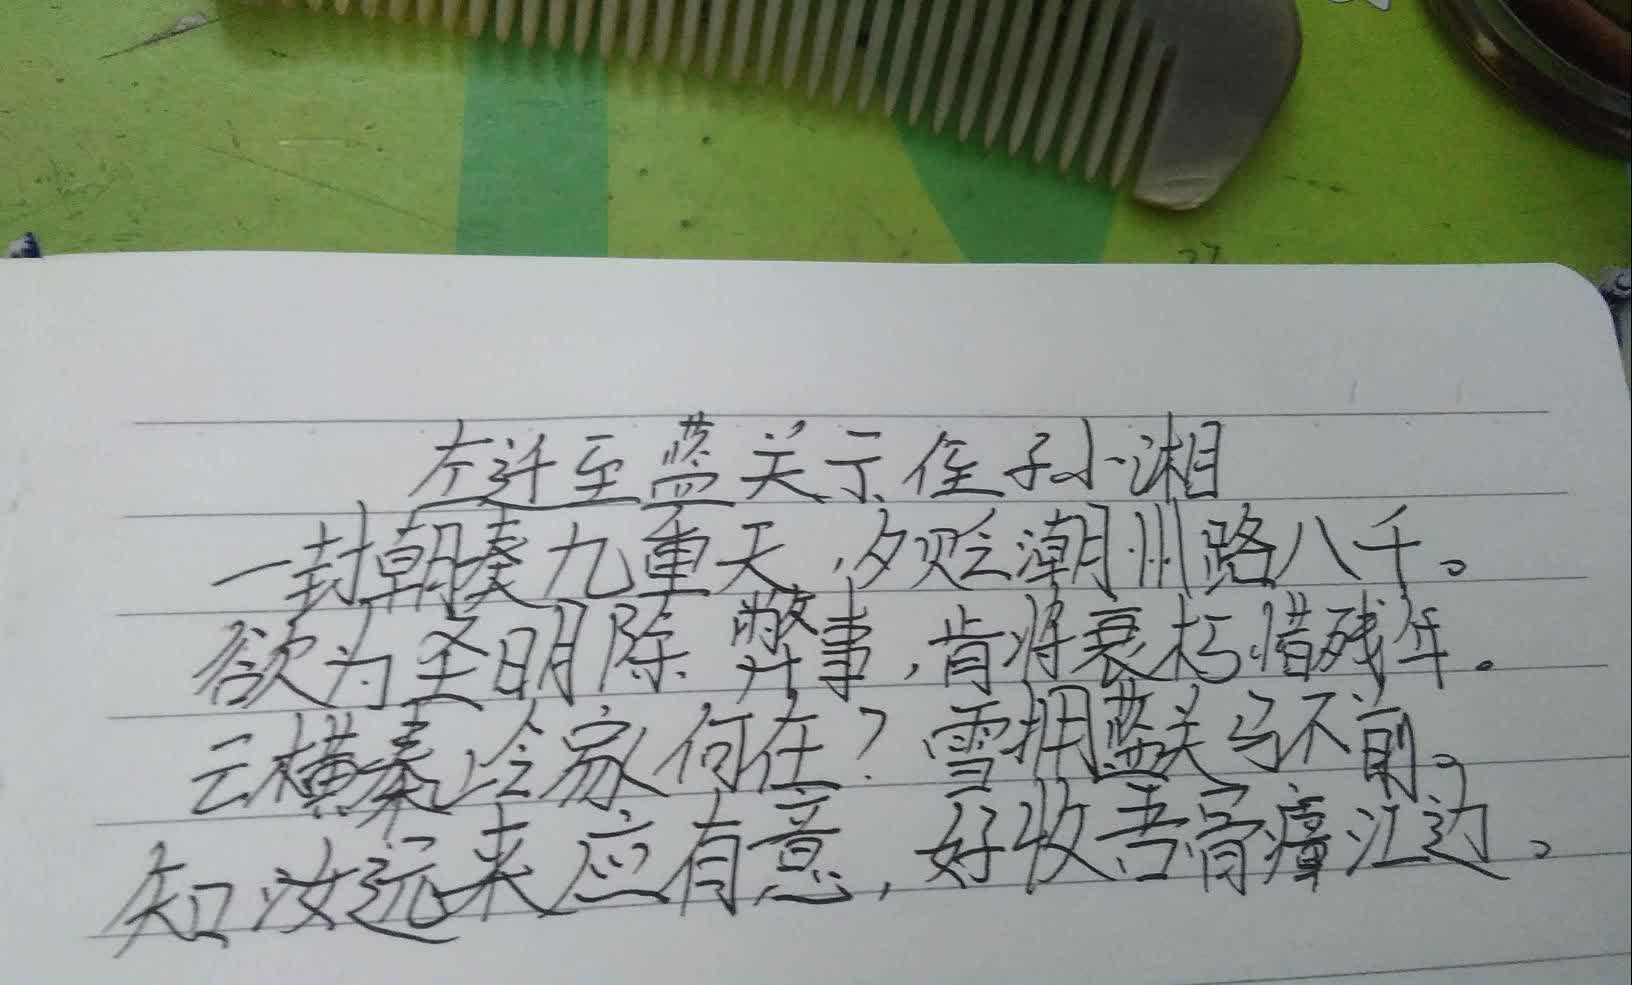 左迁至蓝关示侄子小湘
一封朝奏九重天，夕贬潮州路八千。
欲为圣明除弊事，肯将衰朽惜残年。
云横秦岭家何在？雪拥蓝关马不前。
知汝远来应有意，好收吾骨瘴江边。